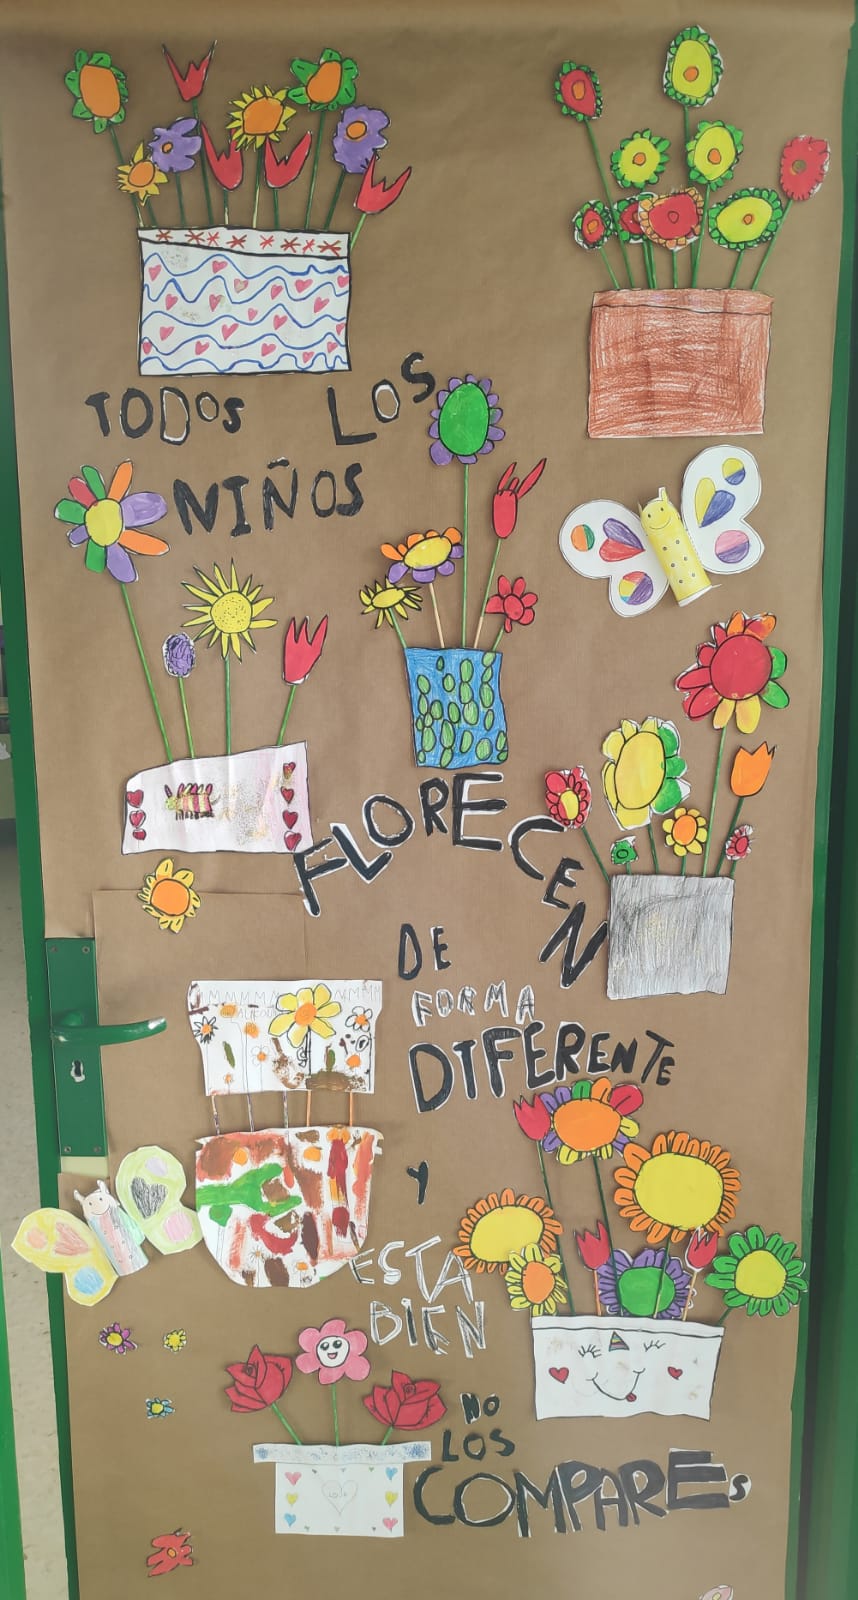 TODOS LOS
NIÑOS
FLORECEN
DE
FORMA
DIFERENTE
Y
ESTA
BIEN
NO
LOS
COMPARES